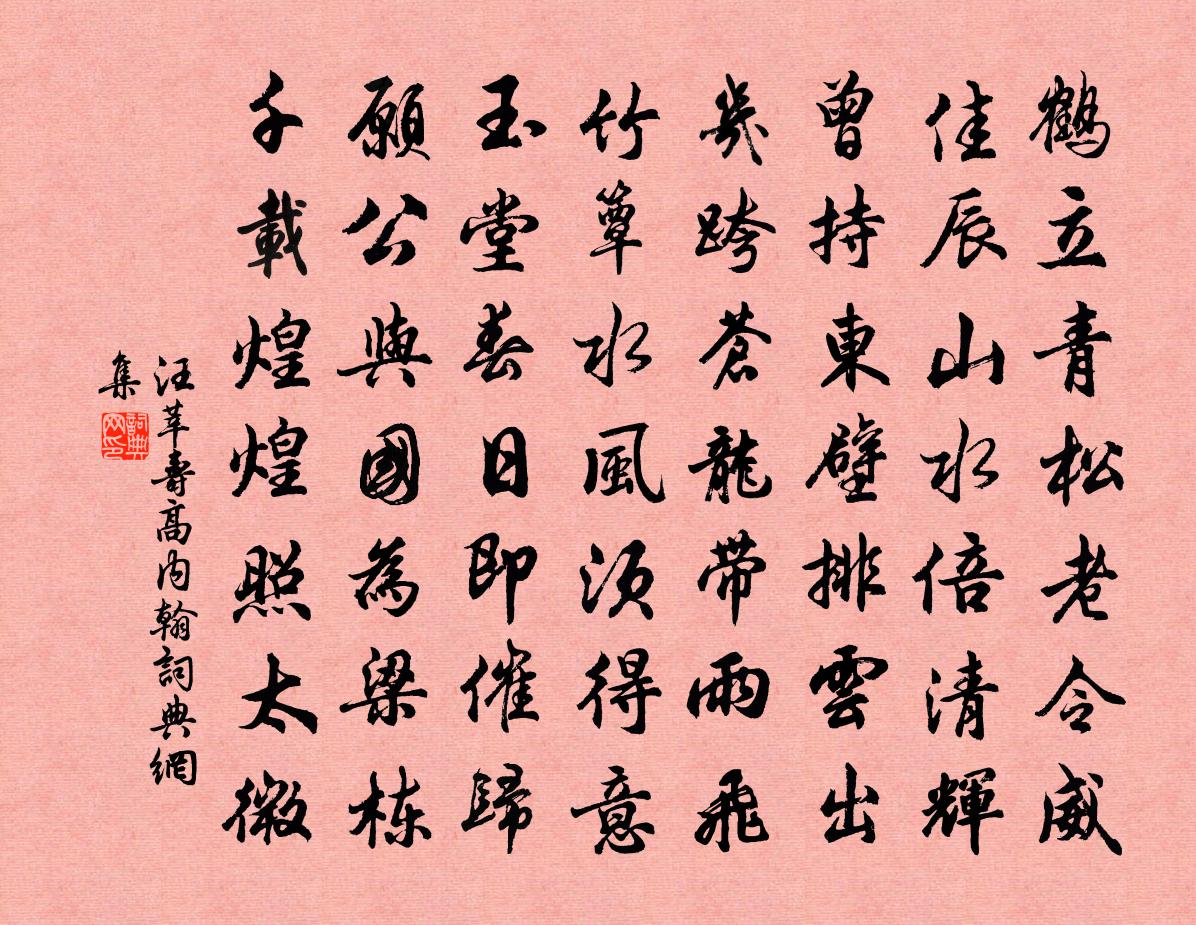 鶴立青松老令威
佳辰山水倍清輝
曾持東壁排雲出
幾跨蒼龍帶雨飛
竹簟水風須得意
玉堂春日即催歸
願公與國為梁棟
千載煌煌照太微
汪莘壽高內翰詞典網
集
詞典
网印